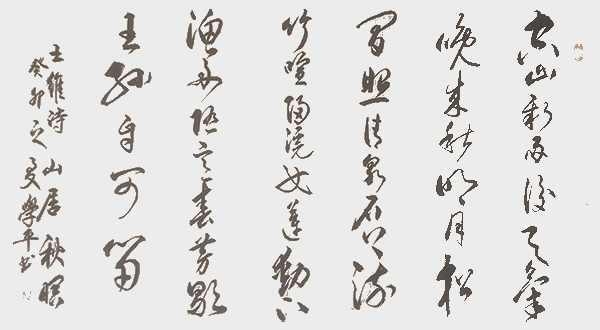 空山新雨後天氣
晚來秋明月松
間照清泉石上流
竹喧歸浣女蓮動下
漁舟隨意春芳歇
王孫自可留
王維詩山居秋暝
癸卯之夏學平书